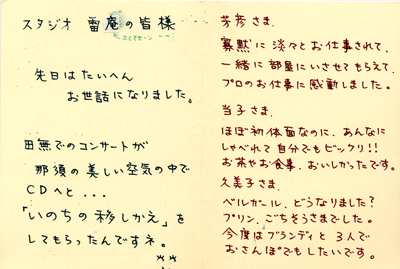 スタジオ 雷庵の皆様
スミマセーン
先日はたいへん
お世話になりました。
田無でのコンサートが
那須の美しい空気の中で
CDへと...
「いのちの移しかえ」を
してもらったんですネ。
芳彦さま.
寡黙に 淡々とお仕事されて、
一緒に部屋にいさせてもらえて、
プロのお仕事に感動しました。
当子さま.
ほぼ初体面なのに、あんなに
しゃべれて自分でもビックリ!!
お茶やお食事、おいしかったです。
久美子さま.
ベルガール、どうなりました?
プリン、ごちそうさまでした。
今度はブランディと 3人で
おさんぽでもしたいです。